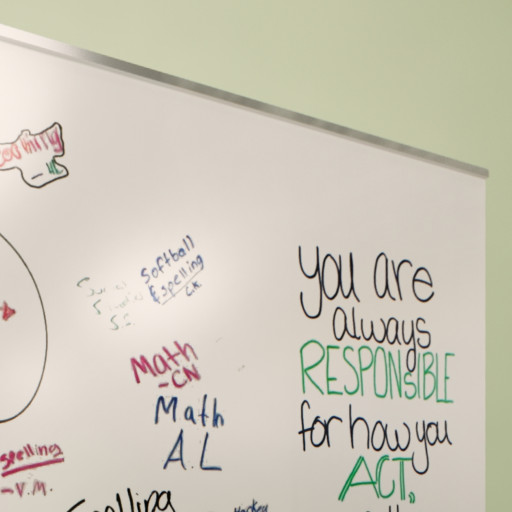 Softball
& spelling
CK
Math
-CN
Math
A.L
spelling
-V.M.
Spelling
Hockey
you are
always
RESPONSIBLE
for how you
ACT,